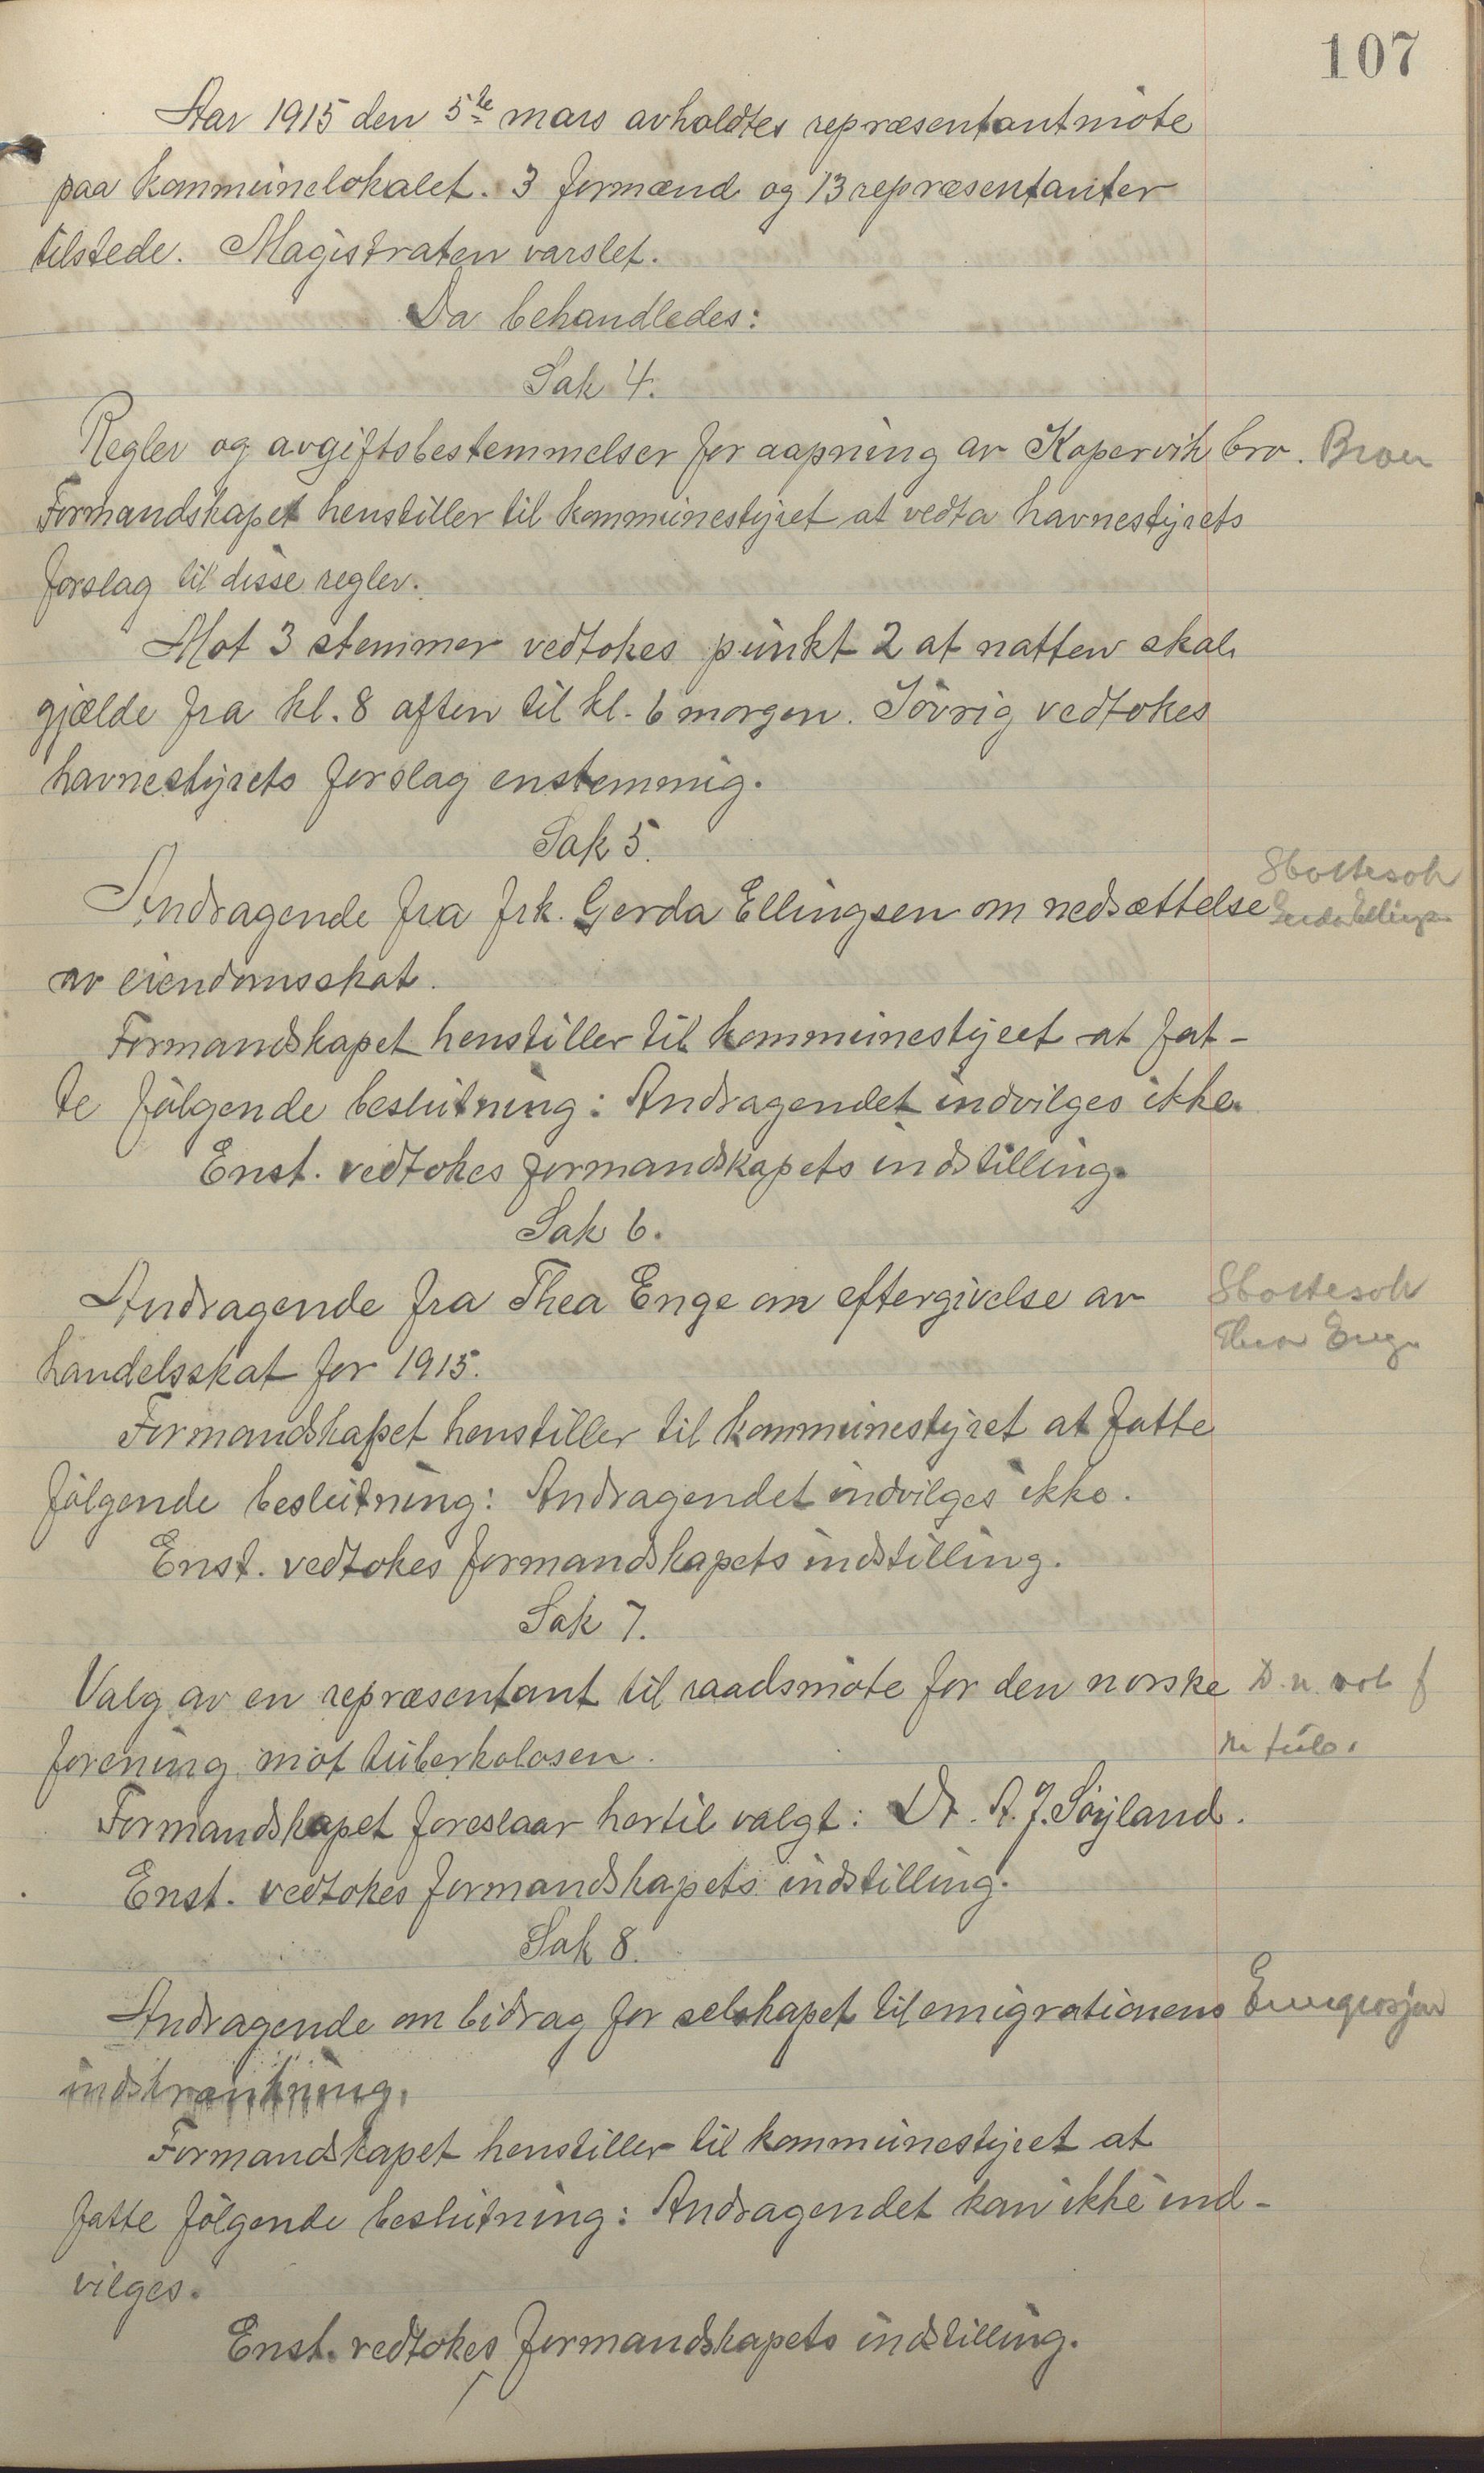 107
Aar 1915 den 5te mars avholdtes repræsentantmøte
paa kommunelokalet. 3 formænd og 13 repræsentanter
tilstede. Magistraten varslet.
Da behandledes:
Sak 4.
Regler og avgiftsbestemmelser for aapning av Kopervik bro. Broen
Formandskapet henstiller til kommunestyret at vedta havnestyrets
forslag til disse regler.
Mot 3 stemmer vedtokes punkt 2 at natten skal
gjælde fra kl. 8 aften til kl. 6 morgen. Iøvrig vedtokes
havnestyrets forslag enstemmig.
Sak 5.
Skattesak
Andragende fra frk. Gerda Ellingsen om nedsættelse Gerda Ellingsen
av eiendomsskat.
Formandskapet henstiller til kommunestyret at fat-
te følgende beslutning: Andragendet indvilges ikke.
Enst. vedtokes formandskapets indstilling.
Sak 6.
Andragende fra Thea Enge om eftergivelse av Skattesak
Thea Enge
handelsskat for 1915.
Formandskapet henstiller til kommunestyret at fatte
følgende beslutning: Andragendet indvilges ikke.
Enst. vedtokes formandskapets indstilling.
Sak 7.
Valg av en repræsentant til raadsmøte for den norske D. n.
forening mot tuberkolosen. m tub.
Formandskapet foreslaar hertil valgt: Dr. A. J. Søyland.
Enst. vedtokes formandskapets indstilling.
Sak 8.
Andragende om bidrag for selskapet til emigrationens Emigrasjon
indskrænkning.
Formandskapet henstiller til kommunestyret at
fatte følgende beslutning: Andragendet kan ikke ind-
vilges.
Enst. vedtokes formandskapets indstilling.